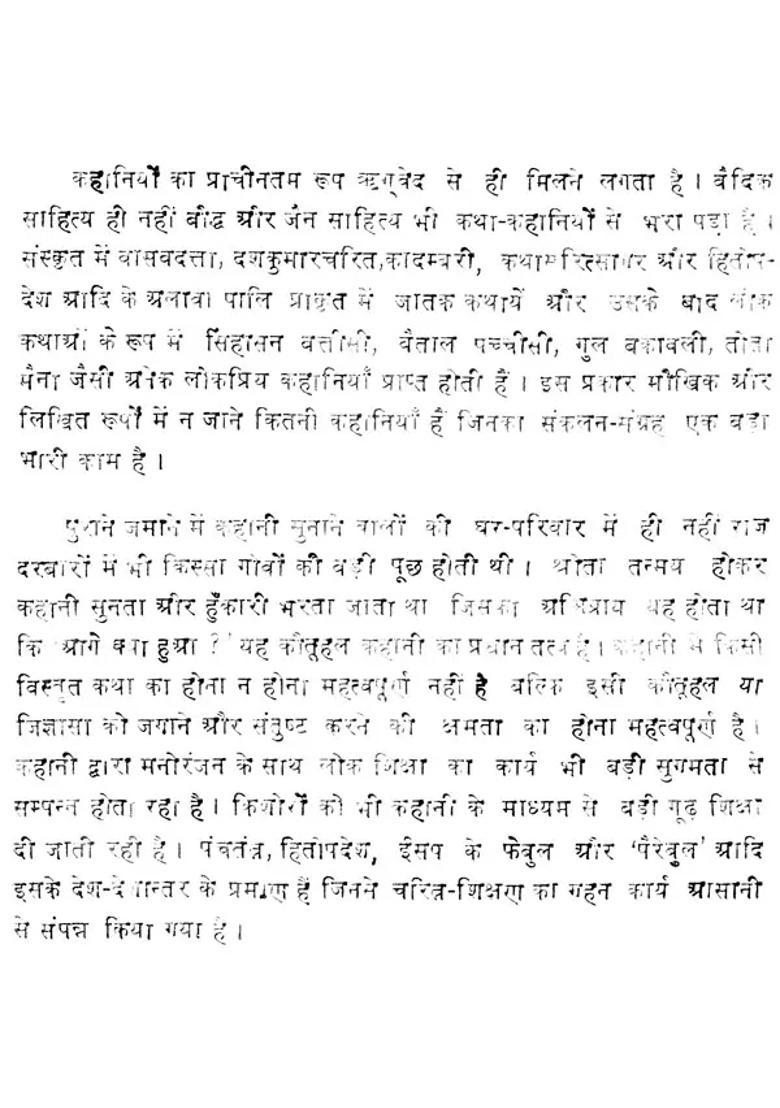 कहानियों का प्राचीनतम रूप ऋग्वेद से ही मिलने लगता है । वैदिक
साहित्य ही नहीं बौद्ध और जैन साहित्य भी कथा-कहानियों से भरा पड़ा है ।
संस्कृत में वासवदत्ता, दशकुमारचरित,कादम्बरी, कथासरित्सागर और हितोप-
देश आदि के अलावा पालि प्राकृत में जातक कथायें और उसके बाद लोक
कथाओं के रूप में सिंहासन बत्तीसी, बैताल पच्चीसी, गुल बकावली, तोता
मैना जैसी अनेक लोकप्रिय कहानियाँ प्राप्त होती हैं । इस प्रकार मौखिक और
लिखित रूपों में न जाने कितनी कहानियाँ हैं जिनका संकलन-संग्रह एक बड़ा
भारी काम है ।
पुराने जमाने में कहानी सुनाने वालों की घर-परिवार में ही नहीं राज
दरबारों में भी किस्सा गोवों की बड़ी पूछ होती थी । श्रोता तन्मय होकर
कहानी सुनता और हुँकारी भरता जाता था जिसका अभिप्राय यह होता था
कि 'आगे क्या हुआ ?' यह कौतूहल कहानी का प्रधान तत्व है । कहानी में किसी
विस्तृत कथा का होना न होना महत्वपूर्ण नहीं है बल्कि इसी कौतूहल या
जिज्ञासा को जगाने और संतुष्ट करने की क्षमता का होना महत्वपूर्ण है ।
कहानी द्वारा मनोरंजन के साथ लोक शिक्षा का कार्य भी बड़ी सुगमता से
सम्पन्न होता रहा है । किशोरों को भी कहानी के माध्यम से बड़ी गूढ़ शिक्षा
दी जाती रही है । पंचतंत्र, हितोपदेश, ईसप के फेबुल और 'पैरेबुल' आदि
इसके देश-देशान्तर के प्रमाण हैं जिनसे चरित्र-शिक्षण का गहन कार्य आसानी
से संपन्न किया गया है ।